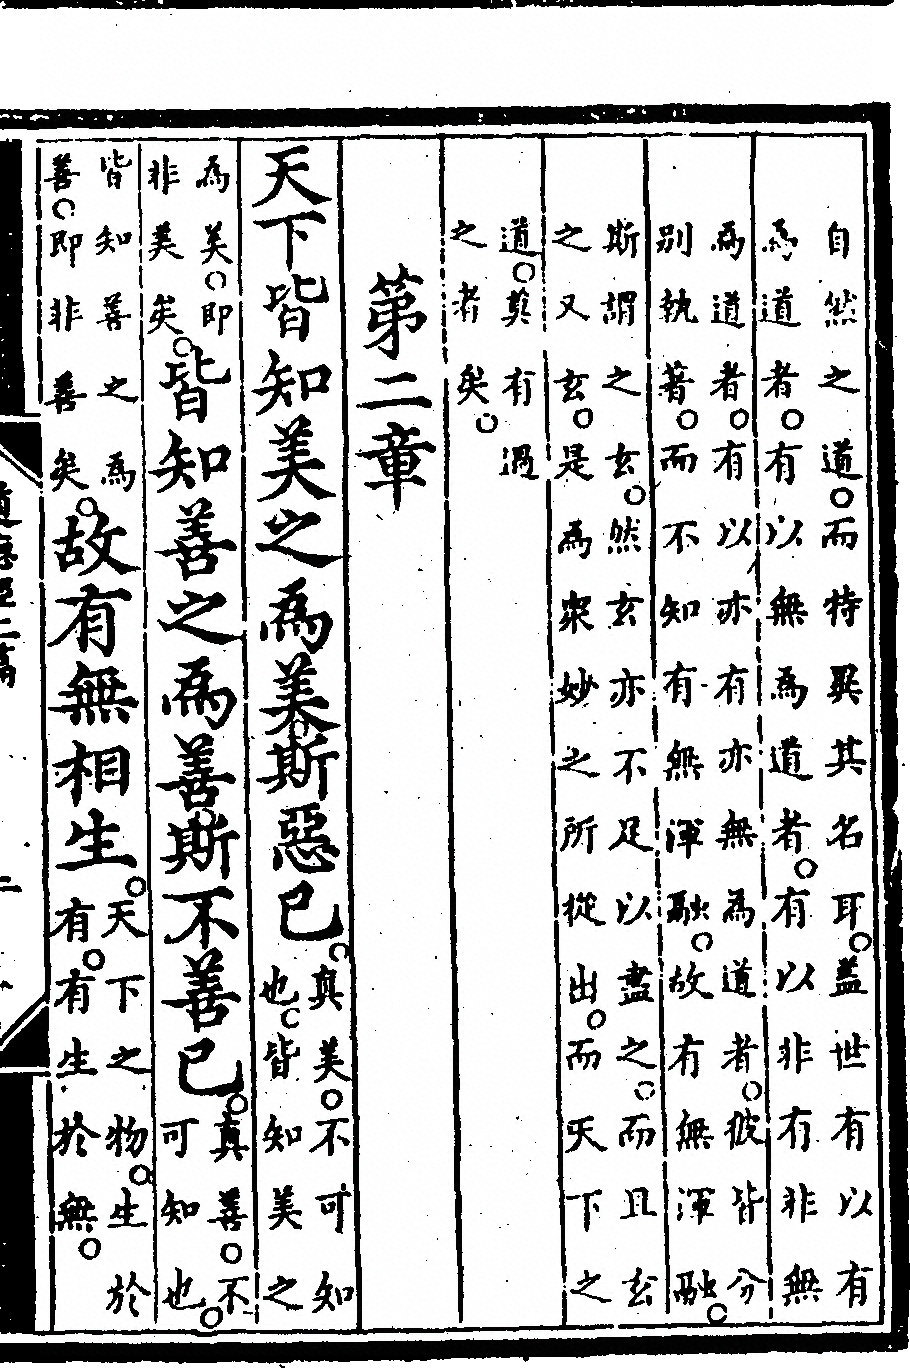 自然之道。而特異其名耳。蓋世有以有
為道者。有以無為道者。有以非有非無
為道者。有以亦有亦無為道者。彼皆分
別執著。而不知有無渾融。故有無渾融。
斯謂之玄。然玄亦不足以盡之。而且玄
之又玄。是為衆妙之所從出。而天下之
道。莫有過
之者矣。
第二章
天下皆知美之為美斯惡已。
真美。不可知
也。皆知美之
為美。即
非美矣。
皆知善之為善斯不善已。
真善。不
可知也。
皆知善之為
善。即非善矣。
故有無相生。
天下之物。生於
有。有生於無。